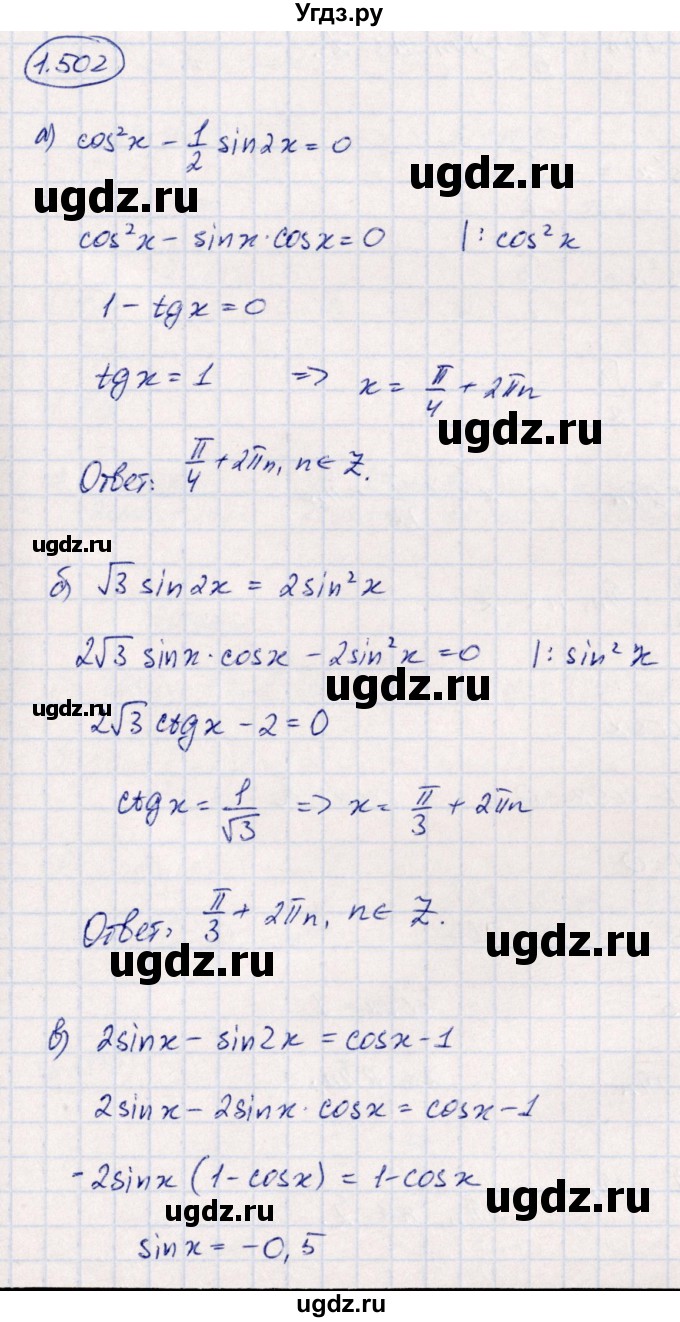 Угдз.ру
1.502
а) cos²x - 1/2 sin2x = 0
ugdz.ru ugdz.ru
cos²x - sinx·cosx = 0 |: cos²x
1 - tgx = 0
tgx = 1 => x = π/4 + 2πn
ugdz.ru
Ответ: π/4 + 2πn, n ∈ Z.
ugdz.ru
б) √3 sin2x = 2sin²x
2√3 sinx·cosx - 2sin²x = 0 |: sin²x
ugdz.ru
ugdz.ru
2√3 ctgx - 2 = 0
ctgx = 1/√3 => x = π/3 + 2πn
Ответ: π/3 + 2πn, n ∈ Z.
ugdz.ru ugdz.ru
в) 2sinx - sin2x = cosx - 1
2sinx - 2sinx·cosx = cosx - 1
-2sinx (1 - cosx) = 1 - cosx
ugdz.ru ugdz.ru
sinx = -0,5
ugdz.ru